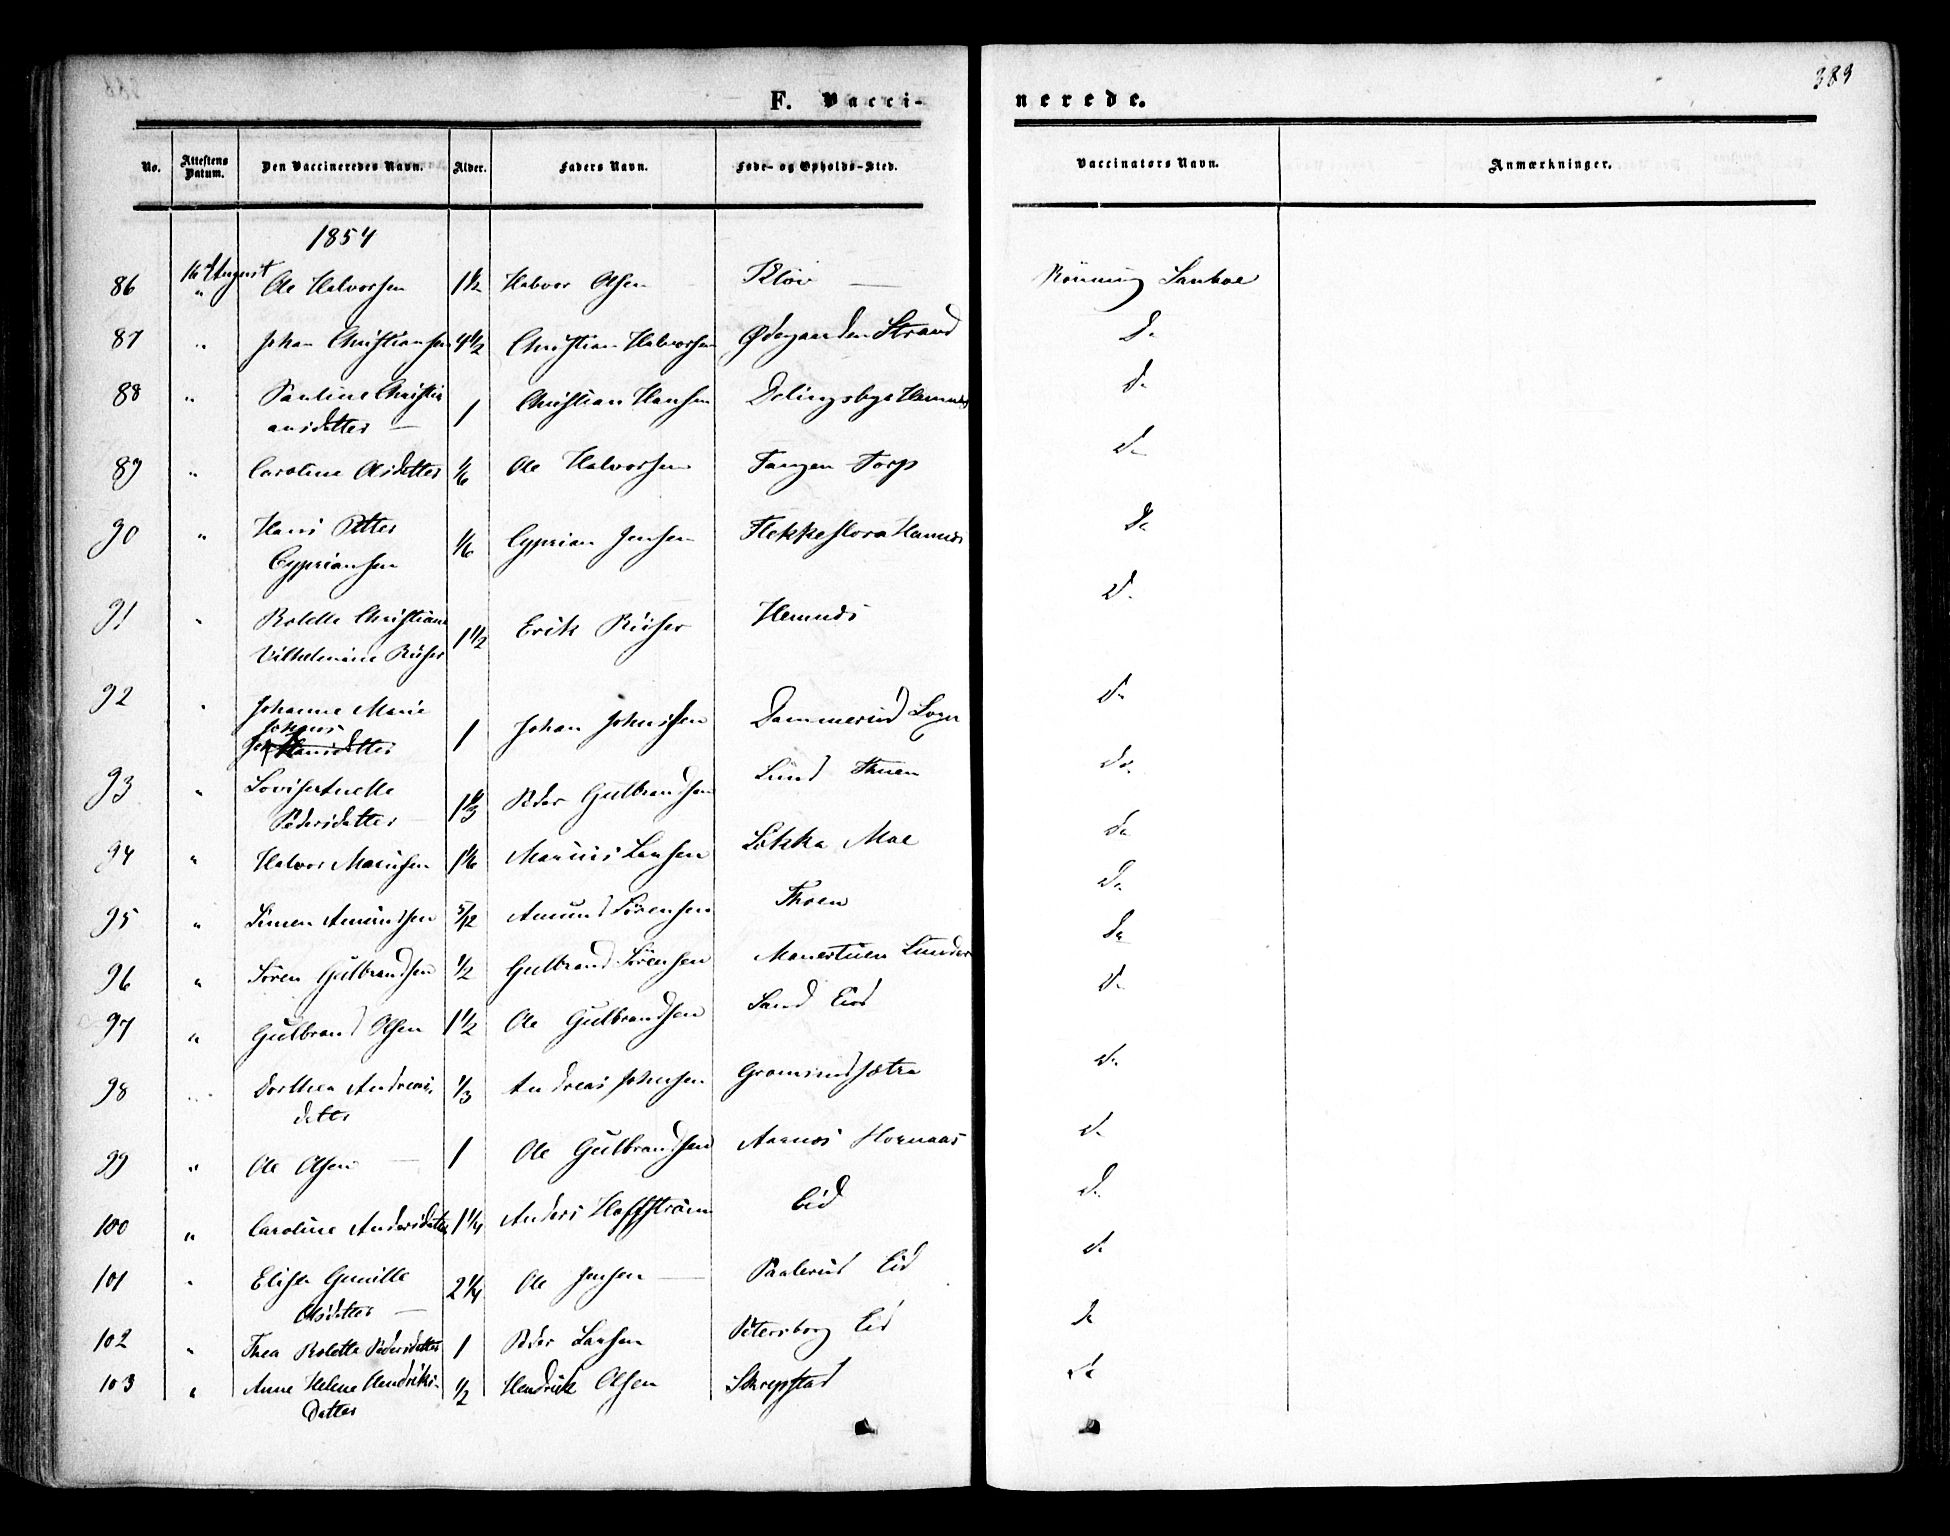 383
F. Vaccinerede.
No. Attestens Datum. Den Vaccineredes Navn. Alder. Faders Navn. Føde- og Opholds-Sted. Vaccinators Navn. Anmærkninger.
1854
16 August
86 " Ole Halvorsen 1 1/2 Halvor Olsen Kløv Rönning
87 " Johan Christiansen 4 1/2 Christian Halvorsen Ødegaarden Strand Do
88 " Pauline Christi
ansdatter 1 Christian Hansen Delingsbye Hemnæs Do
89 " Caroline Olsdatter 1/6 Ole Halvorsen Tangen Torp Do
90 " Hans Petter
Cypriansen 1/6 Cyprian Jensen Hemnæs Do
91 " Bolette Christiane
Vilhelmine 1 1/2 Erik Hemnæs Do
92 " Johanne Marie
Johans
datter 1 Johan Johansen Dammerud Do
93 " Lovise Anette
Pedersdatter 1 1/3 Peder Gulbrandsen Lund Thuen Do
94 " Halvor Mariusen 1 1/6 Marius Larsen Løkka Moe Do
95 " Simen Amundsen 5/12 Amund Sörensen Thoen Do
96 " Sören Gulbrandsen 1/2 Gulbrand Sörensen Do
97 " Gulbrand Olsen 1 1/2 Ole Gulbrandsen Sand Eid Do
98 " Dorthea Andreas
datter 1/3 Andreas Johansen Do
99 " Ole Olsen 1 Ole Gulbrandsen Aarnæs Do
100 " Caroline Andersdatter 1 1/4 Anders Hoffström Eid Do
101 " Elise Gunille
Olsdatter 2 1/4 Ole Jensen Paalerud Eid Do
102 " Thea Bolette Pedersdatter 1 Peder Larsen Petersborg Eid Do
103 " Anne Helene Hendriks
datter 1/2 Hendrik Olsen Skrepstad Do